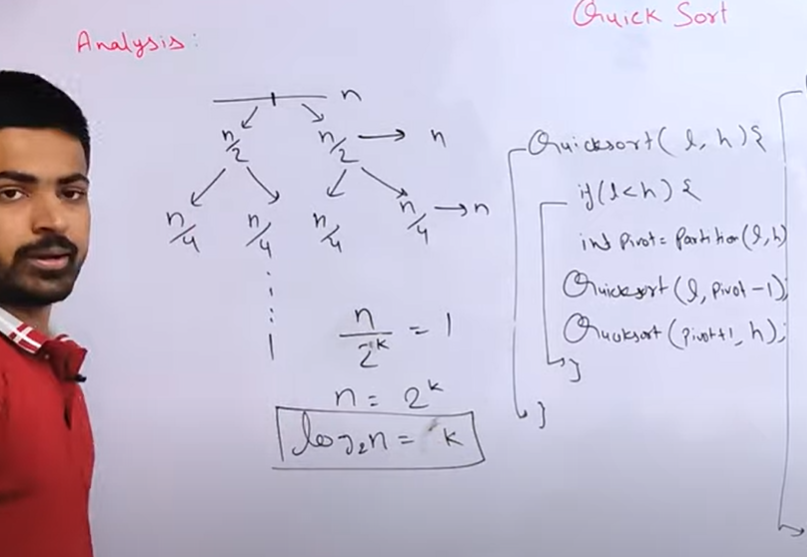 Quick Sort
Analysis:
n
n/2 n/2 → n
n/4 n/4 n/4 n/4 → n
1
n/2^k = 1
n = 2^k
log₂n = k
Quicksort(l, h){
if(l<h){
int pivot = Partition(l,h)
Quicksort(l, pivot-1);
Quicksort(pivot+1, h);
}
}